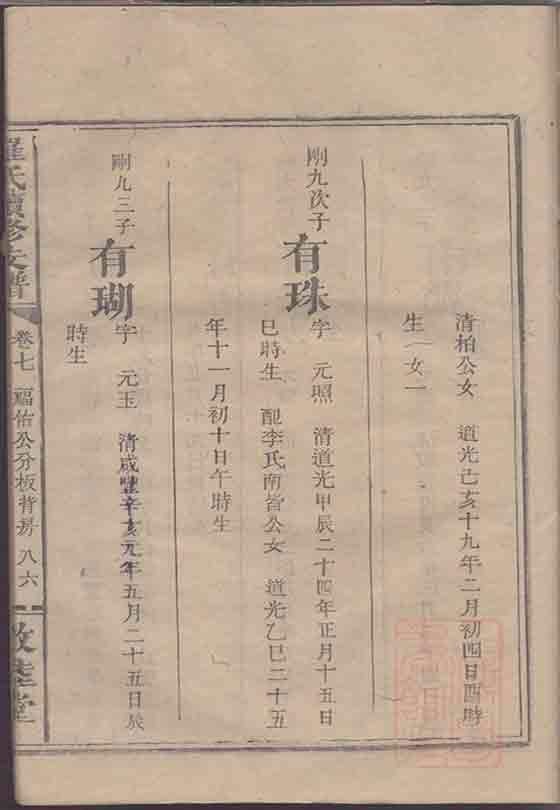 清柏公女 道光己亥十九年二月初四日酉時
生 女一
剛九次子
有珠
字 元照 清道光甲辰二十四年正月十五日
巳時生 配李氏南皆公女 道光乙巳二十五
年十一月初十日午時生
剛九三子
有瑚
字 元玉 清咸豐辛亥元年五月二十五日辰
時生
羅氏續修支譜
卷七 福佑公分板背房 八六
敦睦堂